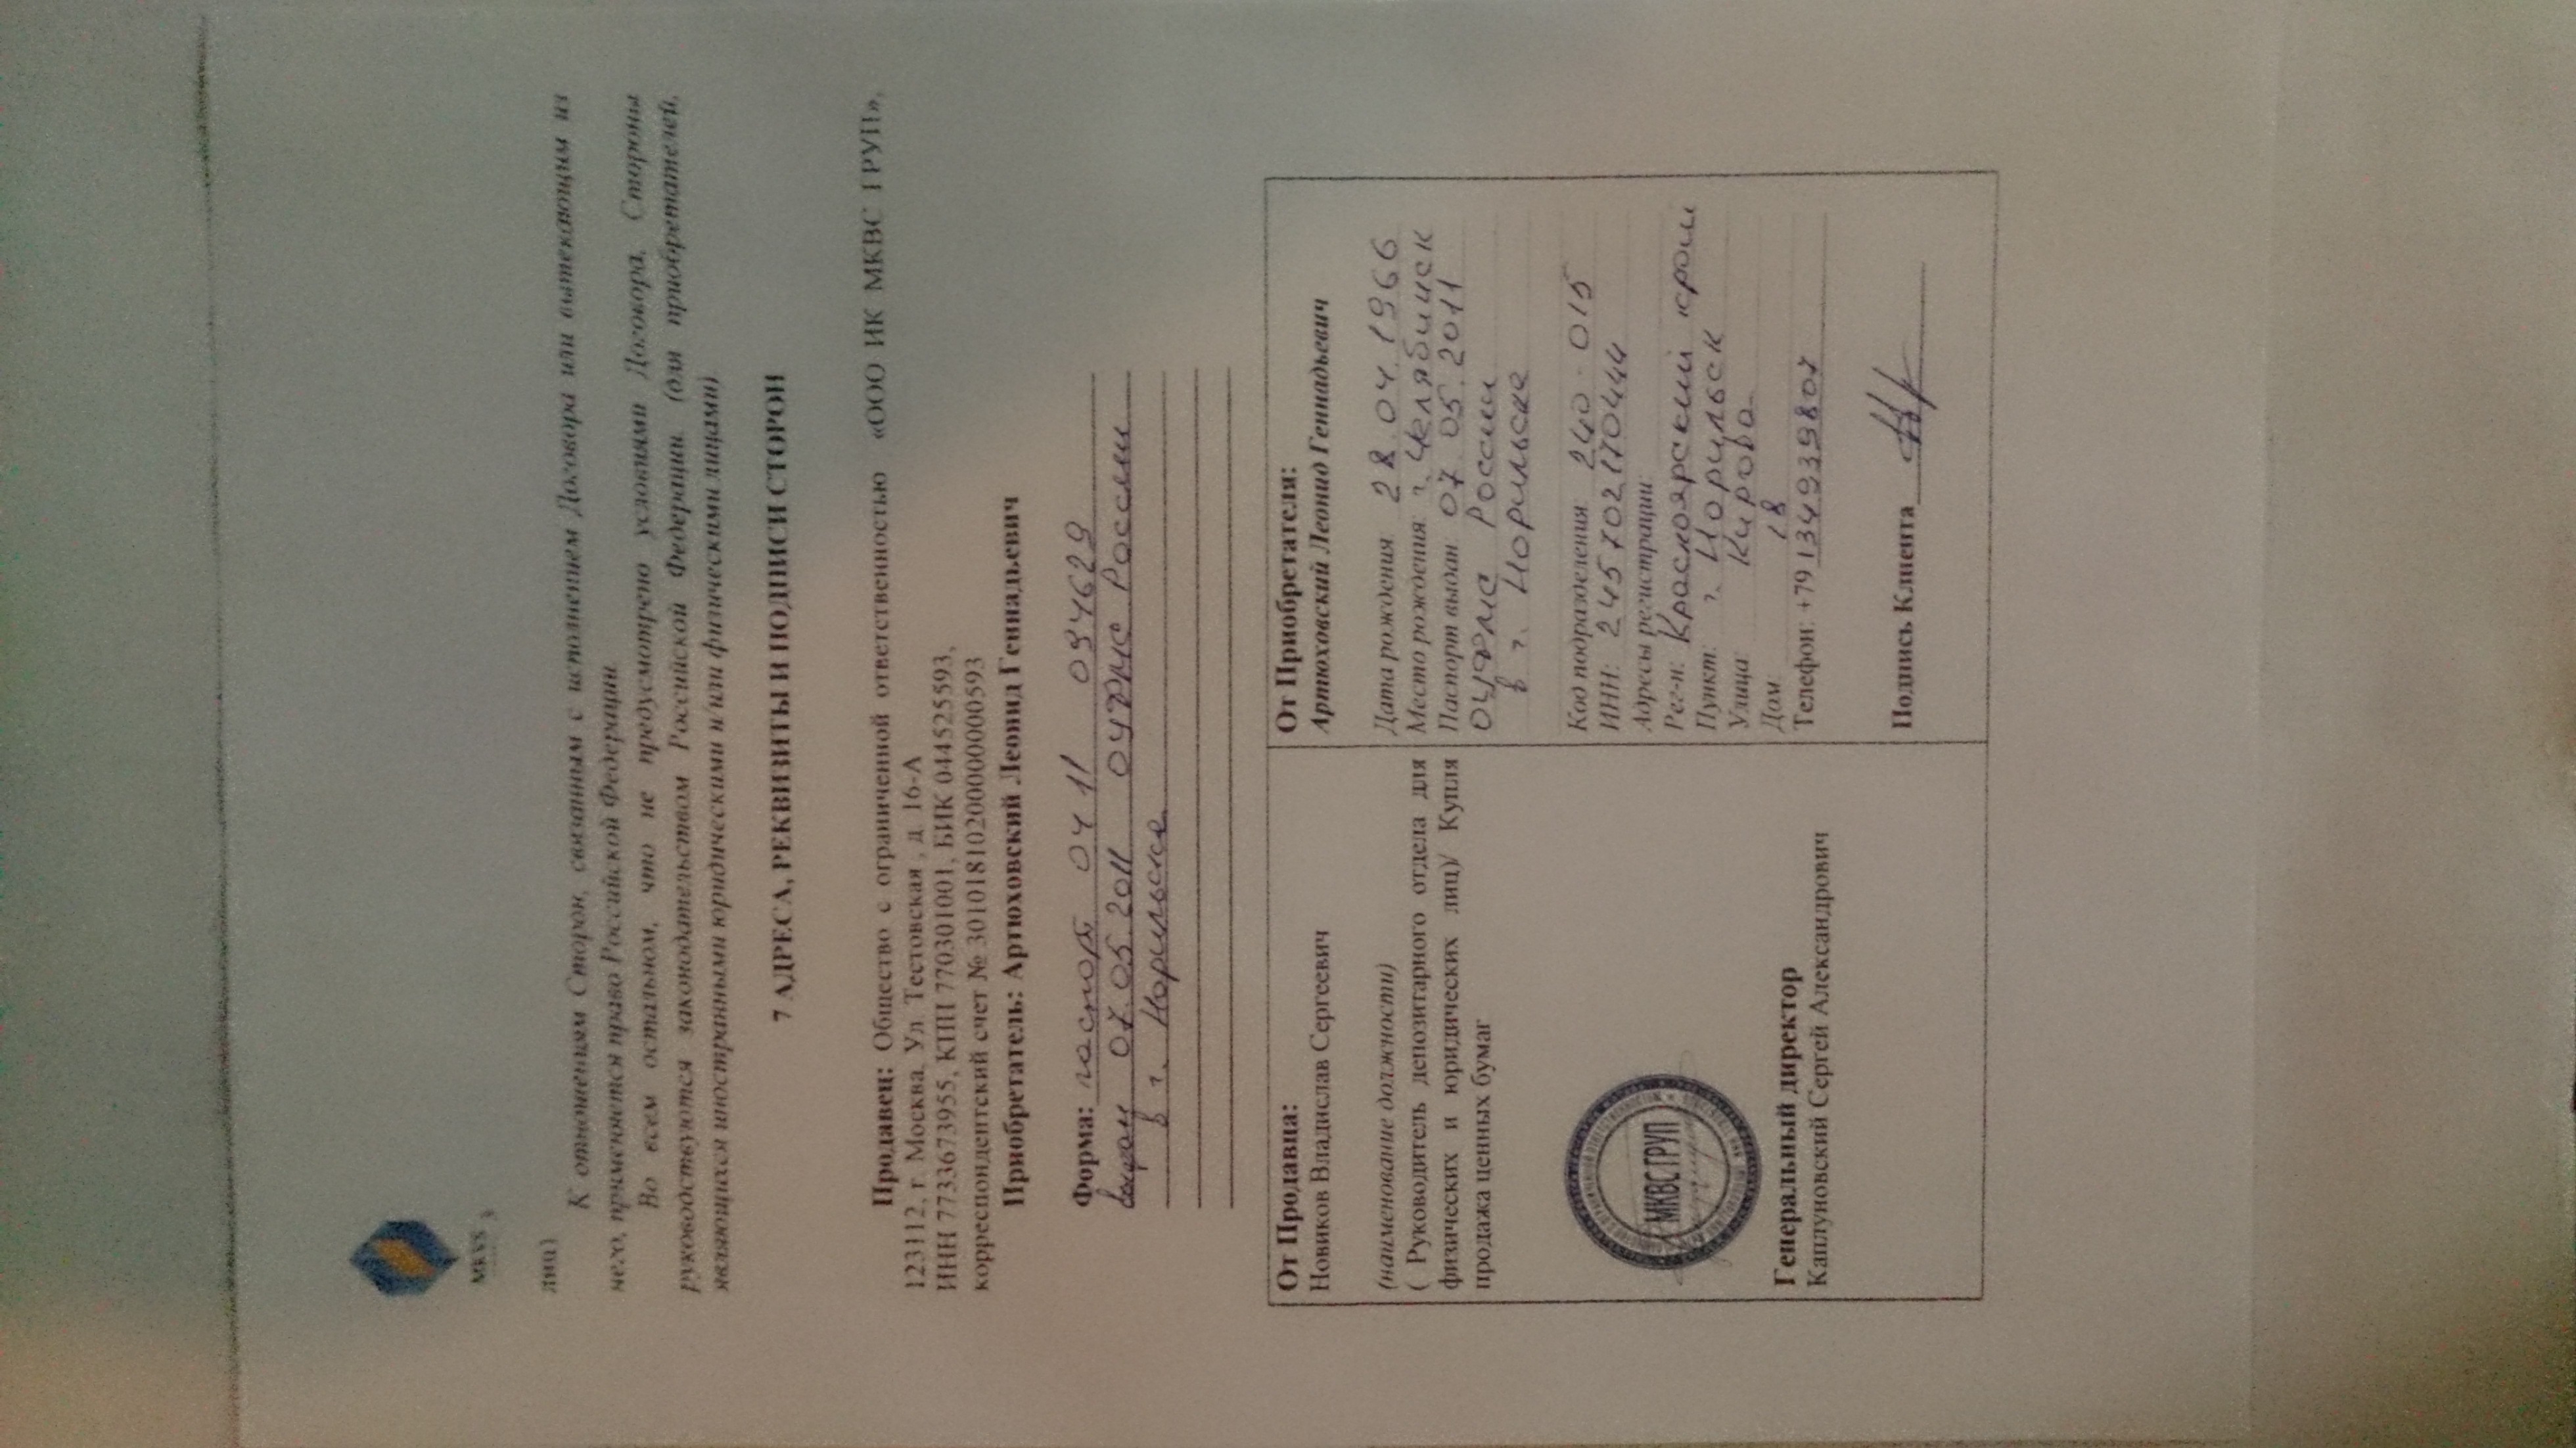 MKVS
3
лиц)
К отношениям Сторон, связанным с исполнением Договора или вытекающим из
него, применяется право Российской Федерации.
Во всем остальном, что не предусмотрено условиями Договора, Стороны
руководствуются законодательством Российской Федерации. (для приобретателей,
являющихся иностранными юридическими и/или физическими лицами)
7 АДРЕСА, РЕКВИЗИТЫ И ПОДПИСИ СТОРОН
Продавец: Общество с ограниченной ответственностью «ООО ИК МКВС ГРУП»,
123112, г. Москва, Ул. Тестовская , д. 16-А
ИНН 7733673955, КПП 770301001, БИК 044525593,
корреспондентский счет №
Приобретатель: Артюховский Леонид Геннадьевич
Форма: паспорт 04 11 0994629
выдан 07.05.2011 ОУФМС России
в г. Норильске
От Продавца:
Новиков Владислав Сергеевич
(наименование должности)
( Руководитель депозитарного отдела для
физических и юридических лиц)/ Купля
продажа ценных бумаг
МКВС ГРУП
Генеральный директор
Каплуновский Сергей Александрович
От Приобретателя:
Артюховский Леонид Геннадьевич
Дата рождения 28.04.1966
Место рождения: г. Челябинск
Паспорт выдан 07.05.2011
ОУФМС России
в г. Норильске
Код подразделения 240-015
ИНН: 245702170444
Адресы регистрации:
Рег-н: Красноярский край
Пункт: г. Норильск
Улица: Кирова
Дом: 18
Телефон: +79134939807
Подпись Клиента